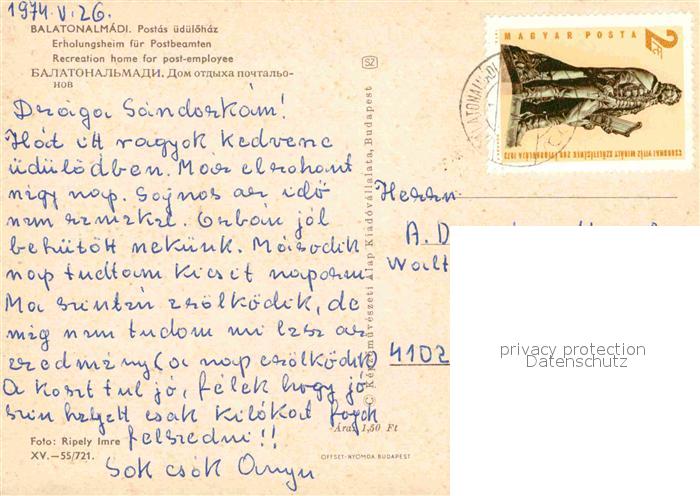 1974.V.26.
BALATONALMÁDI. Postás üdülőház
Erholungsheim für Postbeamten
Recreation home for post-employee
БАЛАТОНАЛЬМАДИ. Дом отдыха почтальо-
нов
Drága Sándorkám!
Hát itt vagyok kedvenc
üdülődben. Már elrohant
négy nap. Sajnos az idő
nem szuszkl. Orbán jól
behűtött nekünk. Második
nap tudtam kicsit napozni
Ma szintén esőlködik, de
még nem tudom mi lesz az
eredmény (a nap esőlködik)
A koszt tul jó, félek hogy jó
szin helyett csak kilókat fogok
felszedni!!
Sok csók Anyu
Foto: Ripely Imre
XV.—55/721.
SZ
© Képzőművészeti Alap Kiadóvállalata, Budapest
Ára: 1,50 Ft
OFFSET-NYOMDA BUDAPEST
MAGYAR POSTA
2 Ft
CSOKONAI VITÉZ MIHÁLY SZÜLETÉSÉNEK 200. ÉVFORDULÓJA 1973
BALATONALMÁDI
Herrn
A. D
Walt
4102
privacy protection
Datenschutz